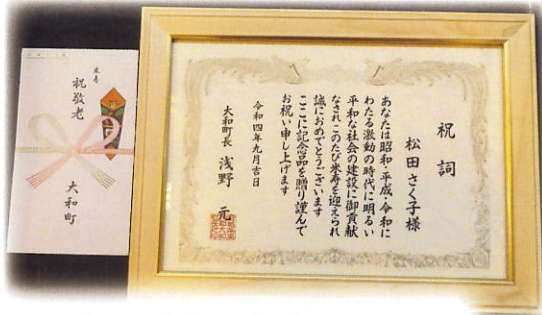 祝詞
松田さく子様
あなたは昭和・平成・令和に
わたる激動の時代に明るい
平和な社会の建設に御貢献
なされこのたび米寿を迎えられ
誠におめでとうございます
ここに記念品を贈り謹んで
お祝い申し上げます
令和四年九月吉日
大和町長 浅野 元
米寿
祝敬老
大和町